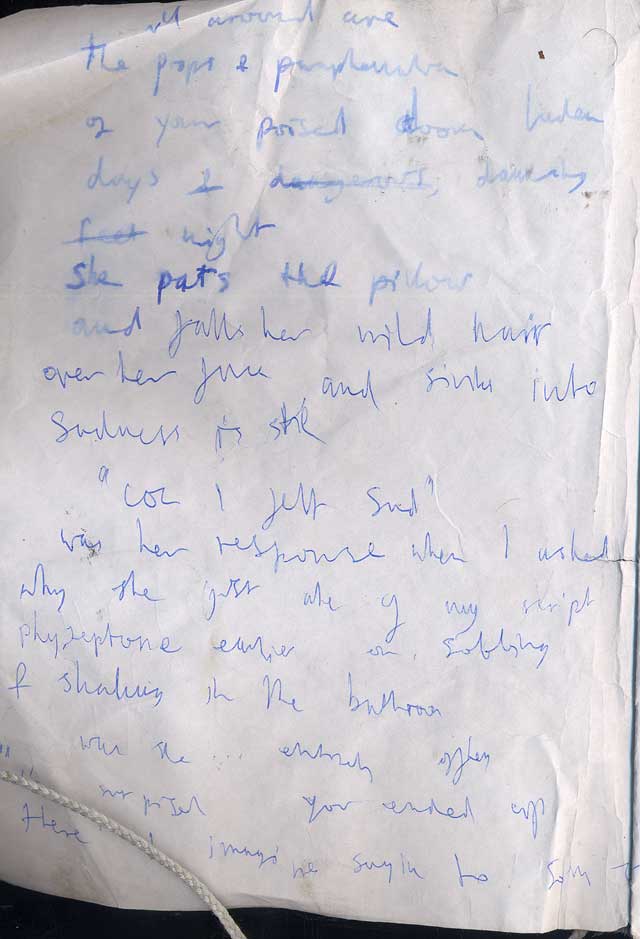 all around are
the props &
of your poised doom
days & dangerous,
feet night
She pats the pillow
and falls her wild hair
over her face and sinks into
Sadness is still
"coz I felt sad"
was her response when I asked
why she just ate of my script
physeptone earlier on. Sobbing
& shaking in the bathroom
was she ... entirely
surprised you ended up
there I imagine sayin to